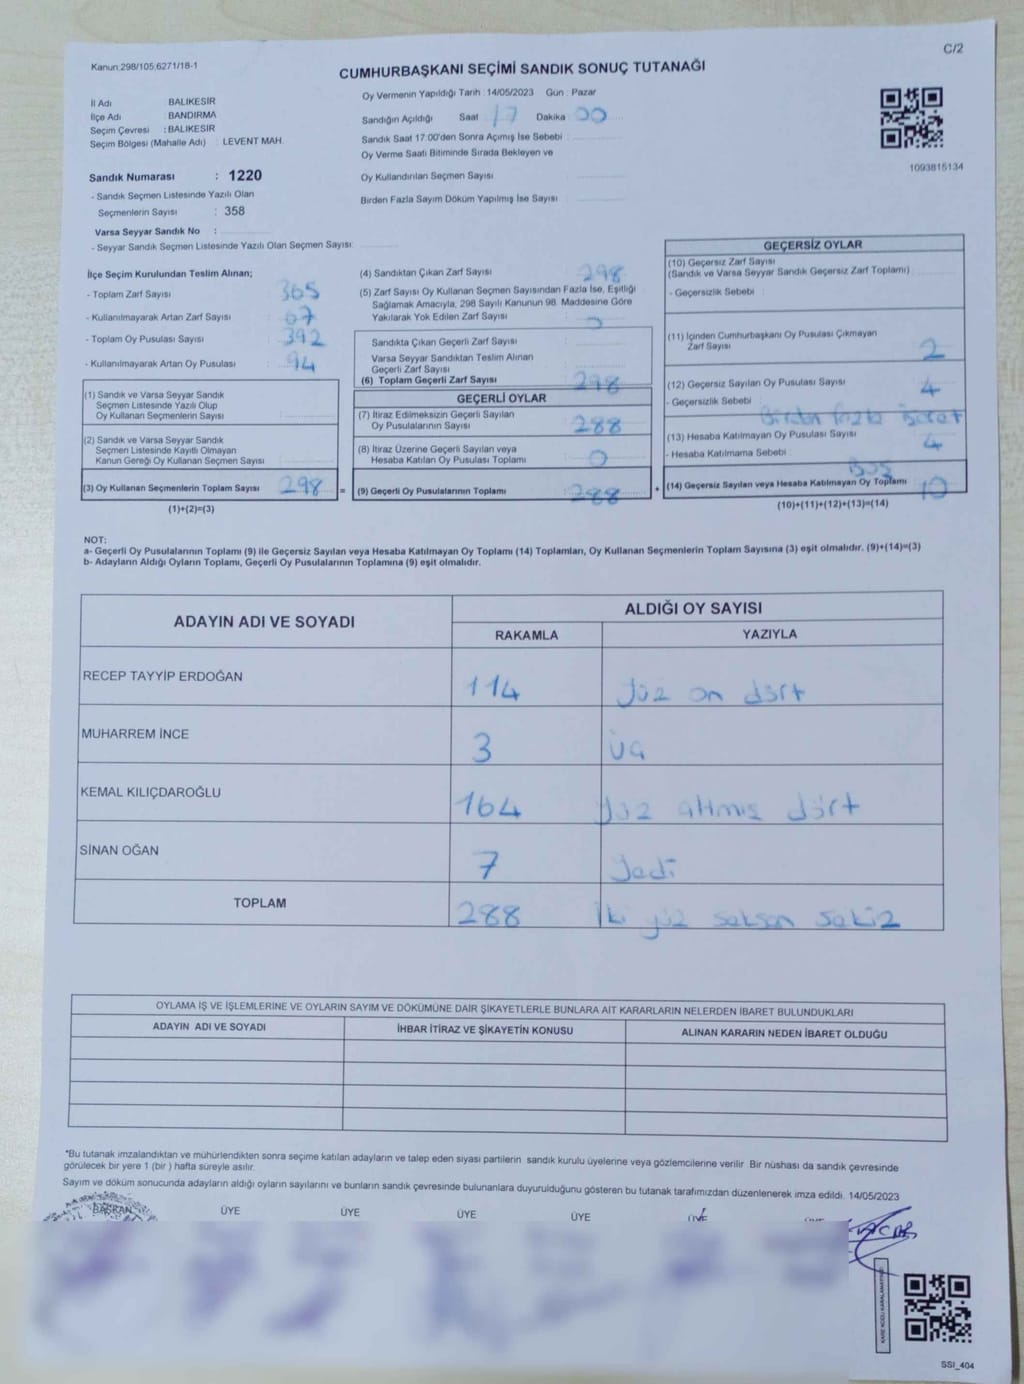 C/2
Kanun 298/105,6271/18-1
CUMHURBAŞKANI SEÇİMİ SANDIK SONUÇ TUTANAĞI
İl Adı BALIKESİR
İlçe Adı : BANDIRMA
Seçim Çevresi : BALIKESİR
Seçim Bölgesi (Mahalle Adı) : LEVENT MAH.
Sandık Numarası : 1220
- Sandık Seçmen Listesinde Yazılı Olan
Seçmenlerin Sayısı : 358
Varsa Seyyar Sandık No :
- Seyyar Sandık Seçmen Listesinde Yazılı Olan Seçmen Sayısı:
Oy Vermenin Yapıldığı Tarih : 14/05/2023 Gün : Pazar
Sandığın Açıldığı Saat 17 Dakika 00
Sandık Saat 17:00'den Sonra Açımış İse Sebebi :
Oy Verme Saati Bitiminde Sırada Bekleyen ve
Oy Kullandırılan Seçmen Sayısı
Birden Fazla Sayım Döküm Yapılmış İse Sayısı :
1093815134
İlçe Seçim Kurulundan Teslim Alınan;
- Toplam Zarf Sayısı : 365
- Kullanılmayarak Artan Zarf Sayısı : 67
- Toplam Oy Pusulası Sayısı : 392
- Kullanılmayarak Artan Oy Pusulası : 94
(1) Sandık ve Varsa Seyyar Sandık
Seçmen Listesinde Yazılı Olup
Oy Kullanan Seçmenlerin Sayısı :
(2) Sandık ve Varsa Seyyar Sandık
Seçmen Listesinde Kayıtlı Olmayan
Kanun Gereği Oy Kullanan Seçmen Sayısı :
(3) Oy Kullanan Seçmenlerin Toplam Sayısı : 298 =
(1)+(2)=(3)
(4) Sandıktan Çıkan Zarf Sayısı : 298
(5) Zarf Sayısı Oy Kullanan Seçmen Sayısından Fazla İse, Eşitliği
Sağlamak Amacıyla, 298 Sayılı Kanunun 98. Maddesine Göre
Yakılarak Yok Edilen Zarf Sayısı : 0
Sandıkta Çıkan Geçerli Zarf Sayısı :
Varsa Seyyar Sandıktan Teslim Alınan
Geçerli Zarf Sayısı :
(6) Toplam Geçerli Zarf Sayısı : 298
GEÇERLİ OYLAR
(7) İtiraz Edilmeksizin Geçerli Sayılan
Oy Pusulalarının Sayısı : 288
(8) İtiraz Üzerine Geçerli Sayılan veya
Hesaba Katılan Oy Pusulası Toplamı : 0
(9) Geçerli Oy Pusulalarının Toplamı : 288 +
GEÇERSİZ OYLAR
(10) Geçersiz Zarf Sayısı
(Sandık ve Varsa Seyyar Sandık Geçersiz Zarf Toplamı)
- Geçersizlik Sebebi :
(11) İçinden Cumhurbaşkanı Oy Pusulası Çıkmayan
Zarf Sayısı 2
(12) Geçersiz Sayılan Oy Pusulası Sayısı 4
- Geçersizlik Sebebi : Birden fazla işaret
(13) Hesaba Katılmayan Oy Pusulası Sayısı 4
- Hesaba Katılmama Sebebi : Boş
(14) Geçersiz Sayılan veya Hesaba Katılmayan Oy Toplamı 10
(10)+(11)+(12)+(13)=(14)
NOT:
a- Geçerli Oy Pusulalarının Toplamı (9) ile Geçersiz Sayılan veya Hesaba Katılmayan Oy Toplamı (14) Toplamları, Oy Kullanan Seçmenlerin Toplam Sayısına (3) eşit olmalıdır. (9)+(14)=(3)
b- Adayların Aldığı Oyların Toplamı, Geçerli Oy Pusulalarının Toplamına (9) eşit olmalıdır.
ADAYIN ADI VE SOYADI ALDIĞI OY SAYISI
RAKAMLA YAZIYLA
RECEP TAYYİP ERDOĞAN 114 Yüz on dört
MUHARREM İNCE 3 üç
KEMAL KILIÇDAROĞLU 164 Yüz altmış dört
SİNAN OĞAN 7 Yedi
TOPLAM 288 İki yüz seksen sekiz
OYLAMA İŞ VE İŞLEMLERİNE VE OYLARIN SAYIM VE DÖKÜMÜNE DAİR ŞİKAYETLERLE BUNLARA AİT KARARLARIN NELERDEN İBARET BULUNDUKLARI
ADAYIN ADI VE SOYADI İHBAR İTİRAZ VE ŞİKAYETİN KONUSU ALINAN KARARIN NEDEN İBARET OLDUĞU
"Bu tutanak imzalandıktan ve mühürlendikten sonra seçime katılan adayların ve talep eden siyasi partilerin sandık kurulu üyelerine veya gözlemcilerine verilir. Bir nüshası da sandık çevresinde
görülecek bir yere 1 (bir ) hafta süreyle asılır.
Sayım ve döküm sonucunda adayların aldığı oyların sayılarını ve bunların sandık çevresinde bulunanlara duyurulduğunu gösteren bu tutanak tarafımızdan düzenlenerek imza edildi. 14/05/2023
BAŞKAN ÜYE ÜYE ÜYE ÜYE ÜYE
KARE KODU KARALAMAYINIZ
SSI_404